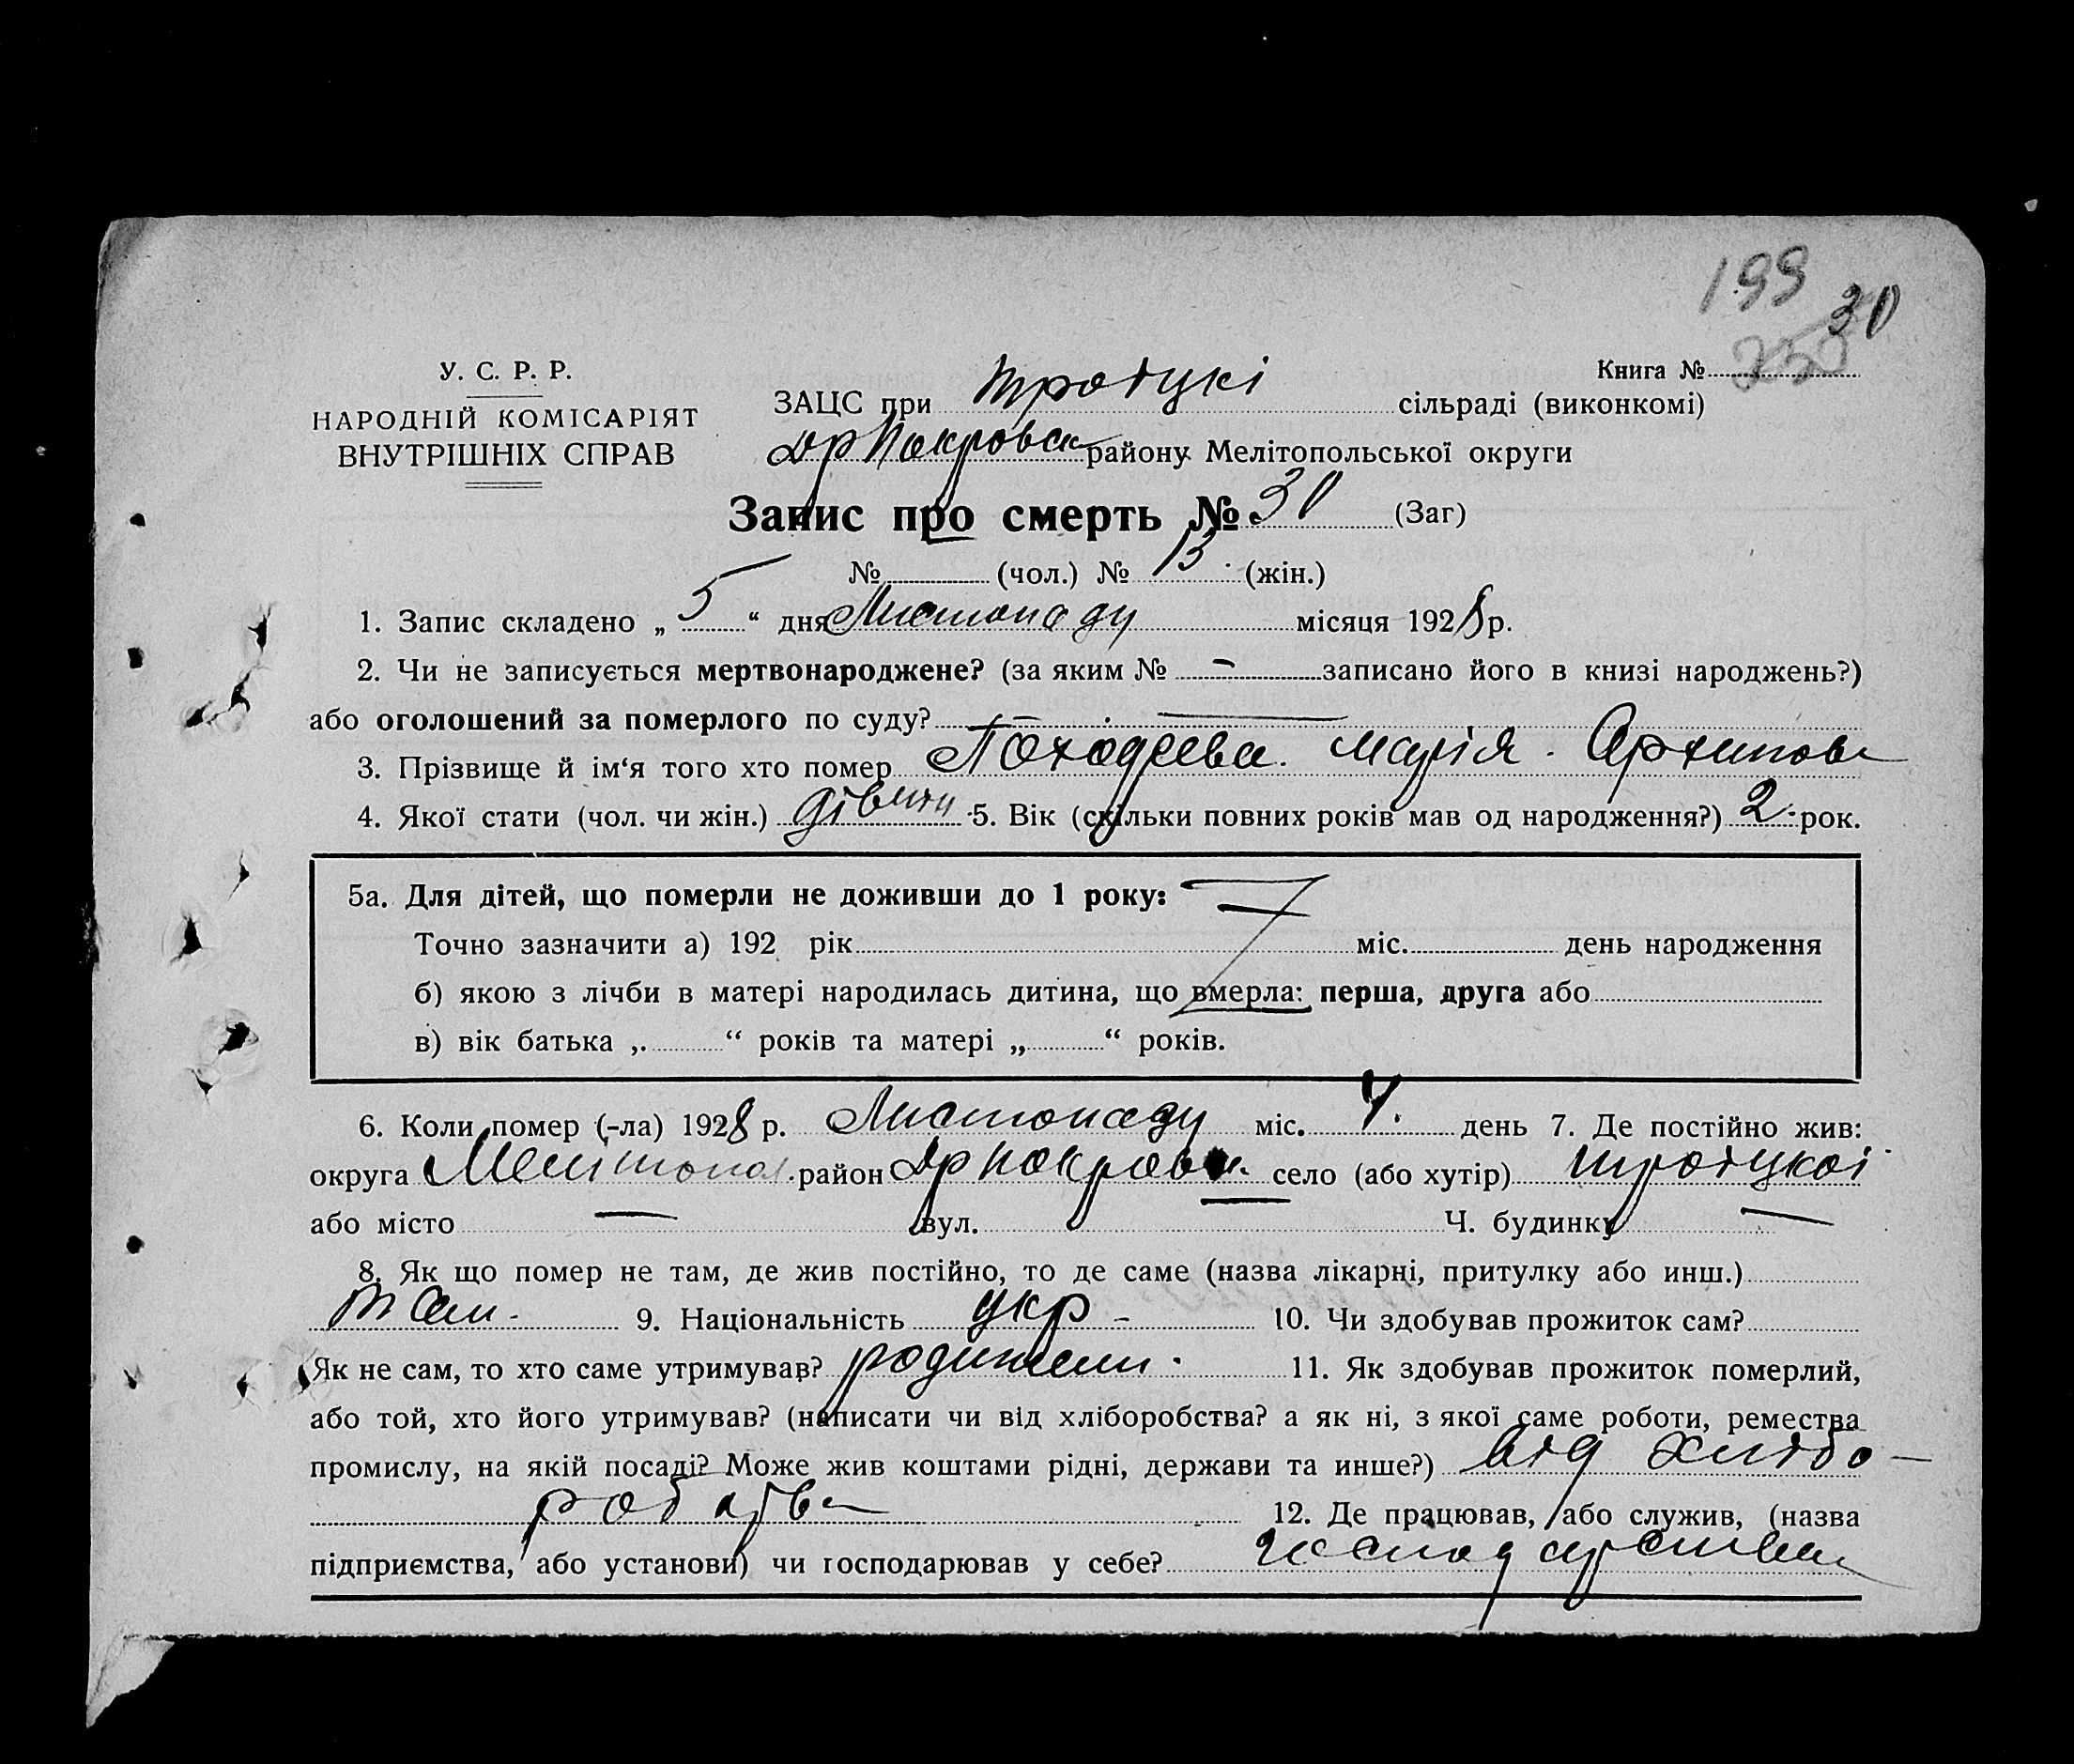 199
30
250
У. С. Р. Р.
НАРОДНІЙ КОМІСАРІЯТ
ВНУТРІШНІХ СПРАВ
Книга №
ЗАЦС при Троїцкі сільраді (виконкомі)
Др Покровск району Мелітопольської округи
Запис про смерть № 30 (Заг)
№ (чол.) № 13 (жін.)
1. Запис складено „ 5 “ дня Листопаду місяця 1928 р.
2. Чи не записується мертвонароджене? (за яким № – записано його в книзі народжень?)
або оголошений за померлого по суду? —
3. Прізвище й ім‘я того хто помер Марія Архипова
4. Якої стати (чол. чи жін.) 5. Вік (скільки повних років мав од народження?) 2 рок.
5а. Для дітей, що померли не доживши до 1 року:
Точно зазначити а) 192 рік міс. день народження
б) якою з лічби в матері народилась дитина, що вмерла: перша, друга або
в) вік батька „ “ років та матері „ “ років.
6. Коли помер (-ла) 1928 р. Листопаду міс. 4. день 7. Де постійно жив:
округа Мелітопол. район Др Покровск. село (або хутір) Троїцкої
або місто — вул. Ч. будинку —
8. Як що помер не там, де жив постійно, то де саме (назва лікарні, притулку або инш.)
там. 9. Національність укр – 10. Чи здобував прожиток сам?
Як не сам, то хто саме утримував? родители. 11. Як здобував прожиток померлий,
або той, хто його утримував? (написати чи від хліборобства? а як ні, з якої саме роботи, ремества
промислу, на якій посаді? Може жив коштами рідні, держави та инше?) від хлібо-
робства 12. Де працював, або служив, (назва
підприємства, або установи) чи господарював у себе?